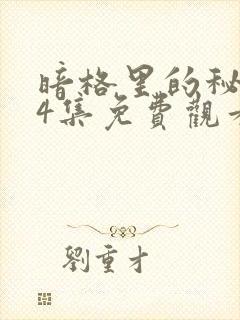 暗格里的秘
4集免費觀
劉重才